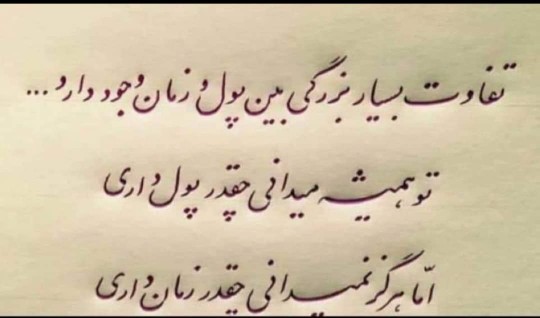 تفاوت بسیار بزرگی بین پول و زمان وجود دارد...
تو همیشه میدانی چقدر پول داری
امّا هرگز نمیدانی چقدر زمان داری